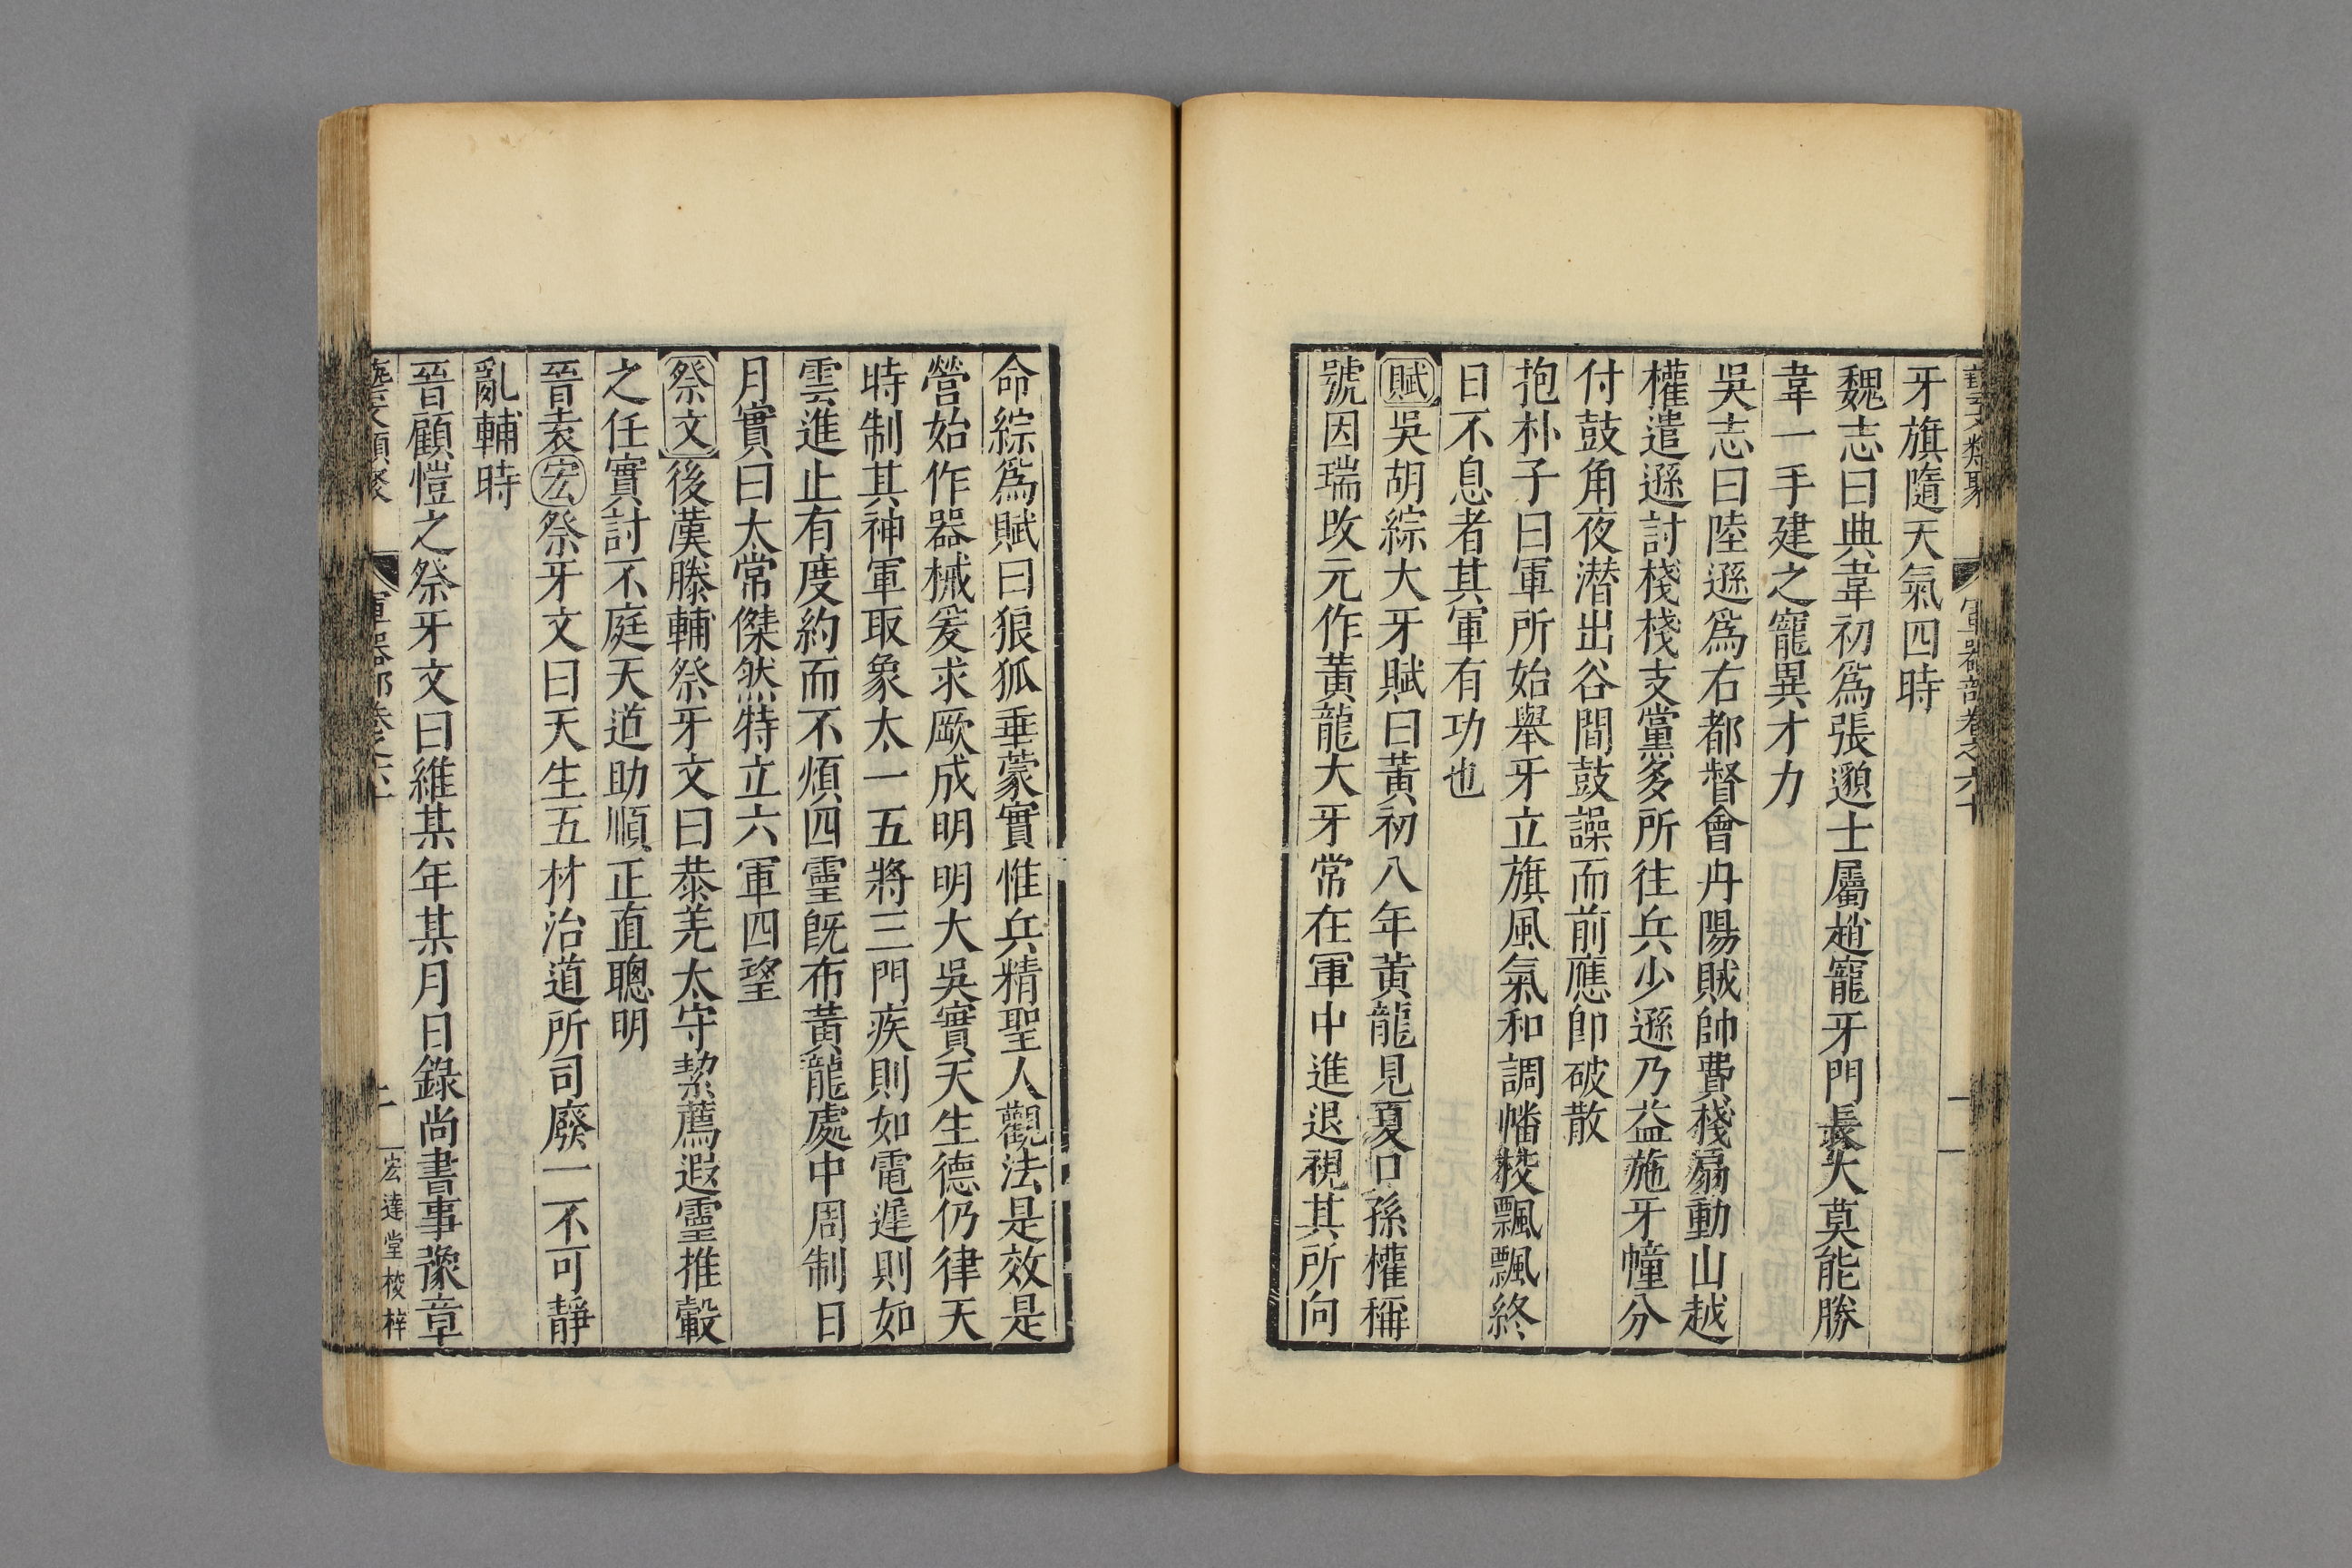 藝文類聚 軍器部卷之六十 一
牙旗隨天氣四時
魏志曰典韋初爲張邈士屬趙寵牙門長大莫能勝
韋一手建之寵異才力
吳志曰陸遜爲右都督會丹陽賊帥費棧扇動山越
權遣遜討棧棧支黨多所往兵少遜乃益施牙幢分
付鼓角夜潛出谷間鼓譟而前應卽破散
抱朴子曰軍所始舉牙立旗風氣和調幡校飄飄終
日不息者其軍有功也
賦吳胡綜大牙賦曰黃初八年黃龍見夏口孫權稱
號因瑞攺元作黃龍大牙常在軍中進退視其所向
命綜爲賦曰狼狐垂蒙實惟兵精聖人觀法是效是
營始作器械爰求厥成明明大吳實天生德仍律天
時制其神軍取象太一五將三門疾則如電遲則如
雲進止有度約而不煩四靈旣布黃龍處中周制日
月實曰太常傑然特立六軍四望
祭文後漢滕輔祭牙文曰恭羌太守絜薦遐靈推轂
之任實討不庭天道助順正直聰明
晉袁宏祭牙文曰天生五材治道所司廢一不可靜
亂輔時
晉顧愷之祭牙文曰維某年某月日錄尚書事豫章
藝文類聚 軍器部卷之六十 宏達堂校梓